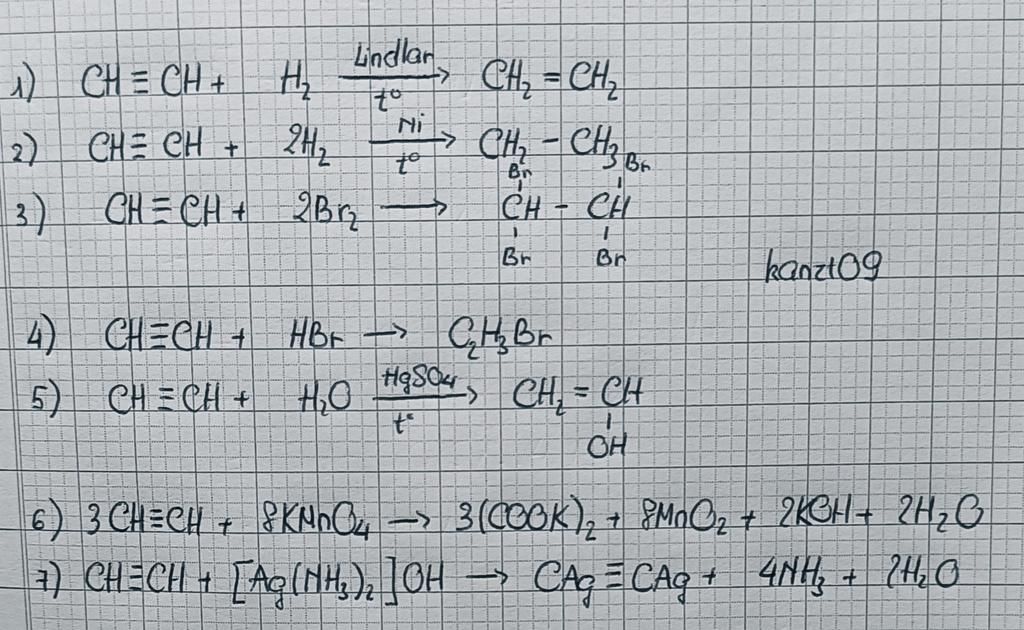 1) CH≡CH + H₂ —Lindlar/t°→ CH₂=CH₂
2) CH≡CH + 2H₂ —Ni/t°→ CH₂-CH₃
Br Br
3) CH≡CH + 2Br₂ → CH-CH
Br Br
kanzt09
4) CH≡CH + HBr → C₂H₃Br
5) CH≡CH + H₂O —HgSO₄/t°→ CH₂=CH
OH
6) 3CH≡CH + 8KMnO₄ → 3(COOK)₂ + 8MnO₂ + 2KOH + 2H₂O
7) CH≡CH + [Ag(NH₃)₂]OH → CAg≡CAg + 4NH₃ + 2H₂O